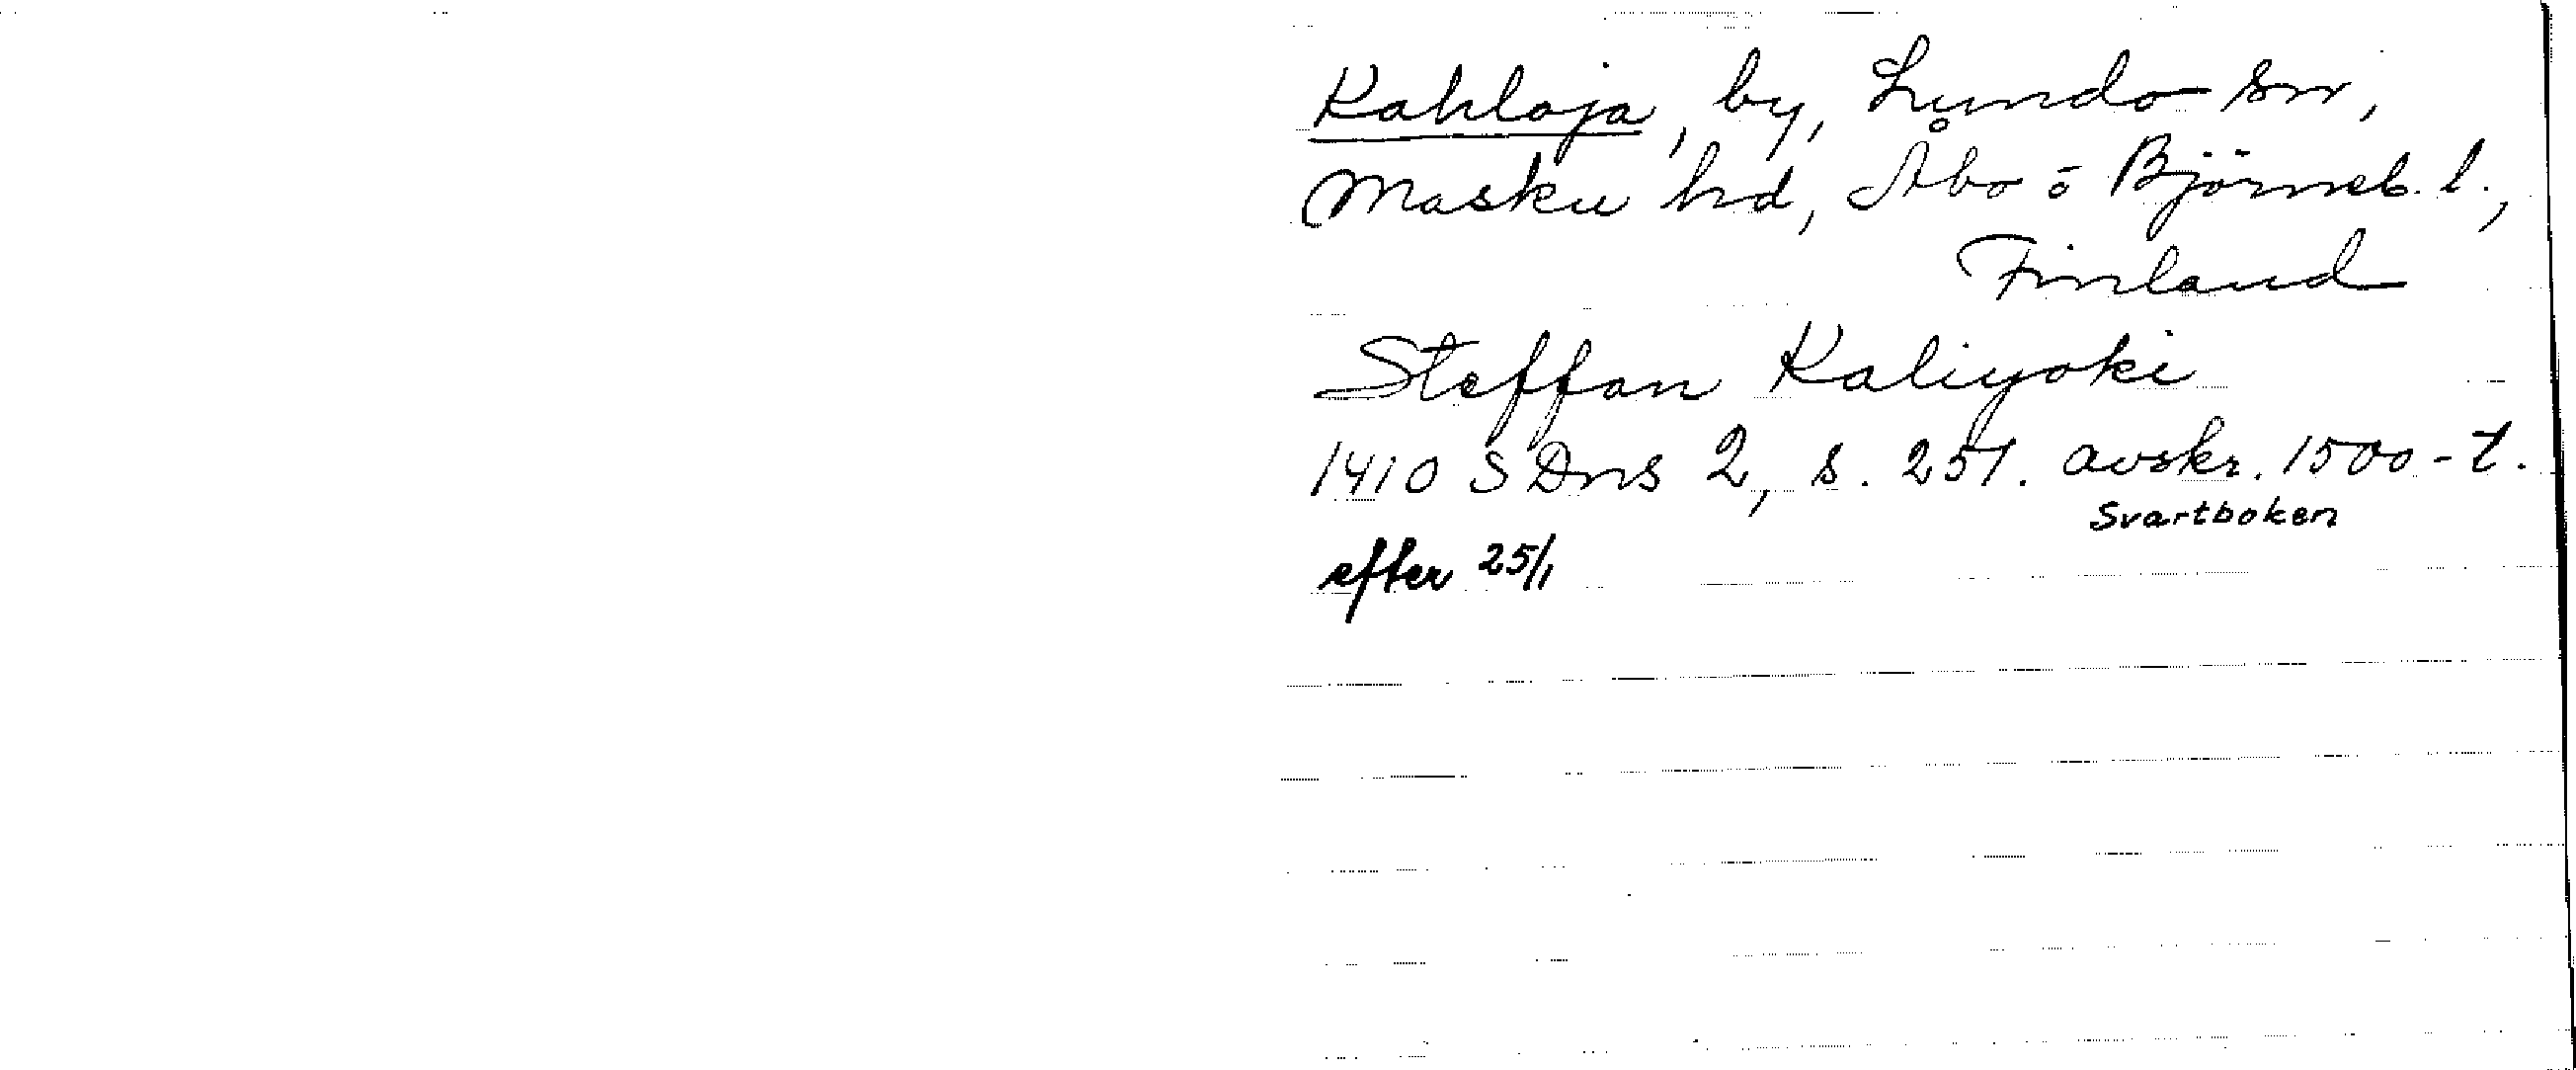 Kahloja, by, Lundo sn,
Masku hd, Åbo o Björneb. l.,
Finland
Steffan Kaliyoki
1410 SDns 2, s. 251. avskr. 1500-t.
Svartboken
efter 25/1